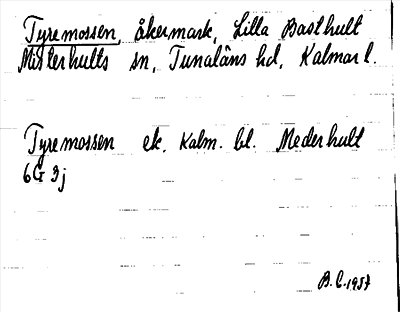 Tyremossen, åkermark, Lilla Basthult
Misterhults sn, Tunaläns hd, Kalmar l.
Tyremossen ek. Kalm. bl. Mederhult
6G 3j
B.C. 1957